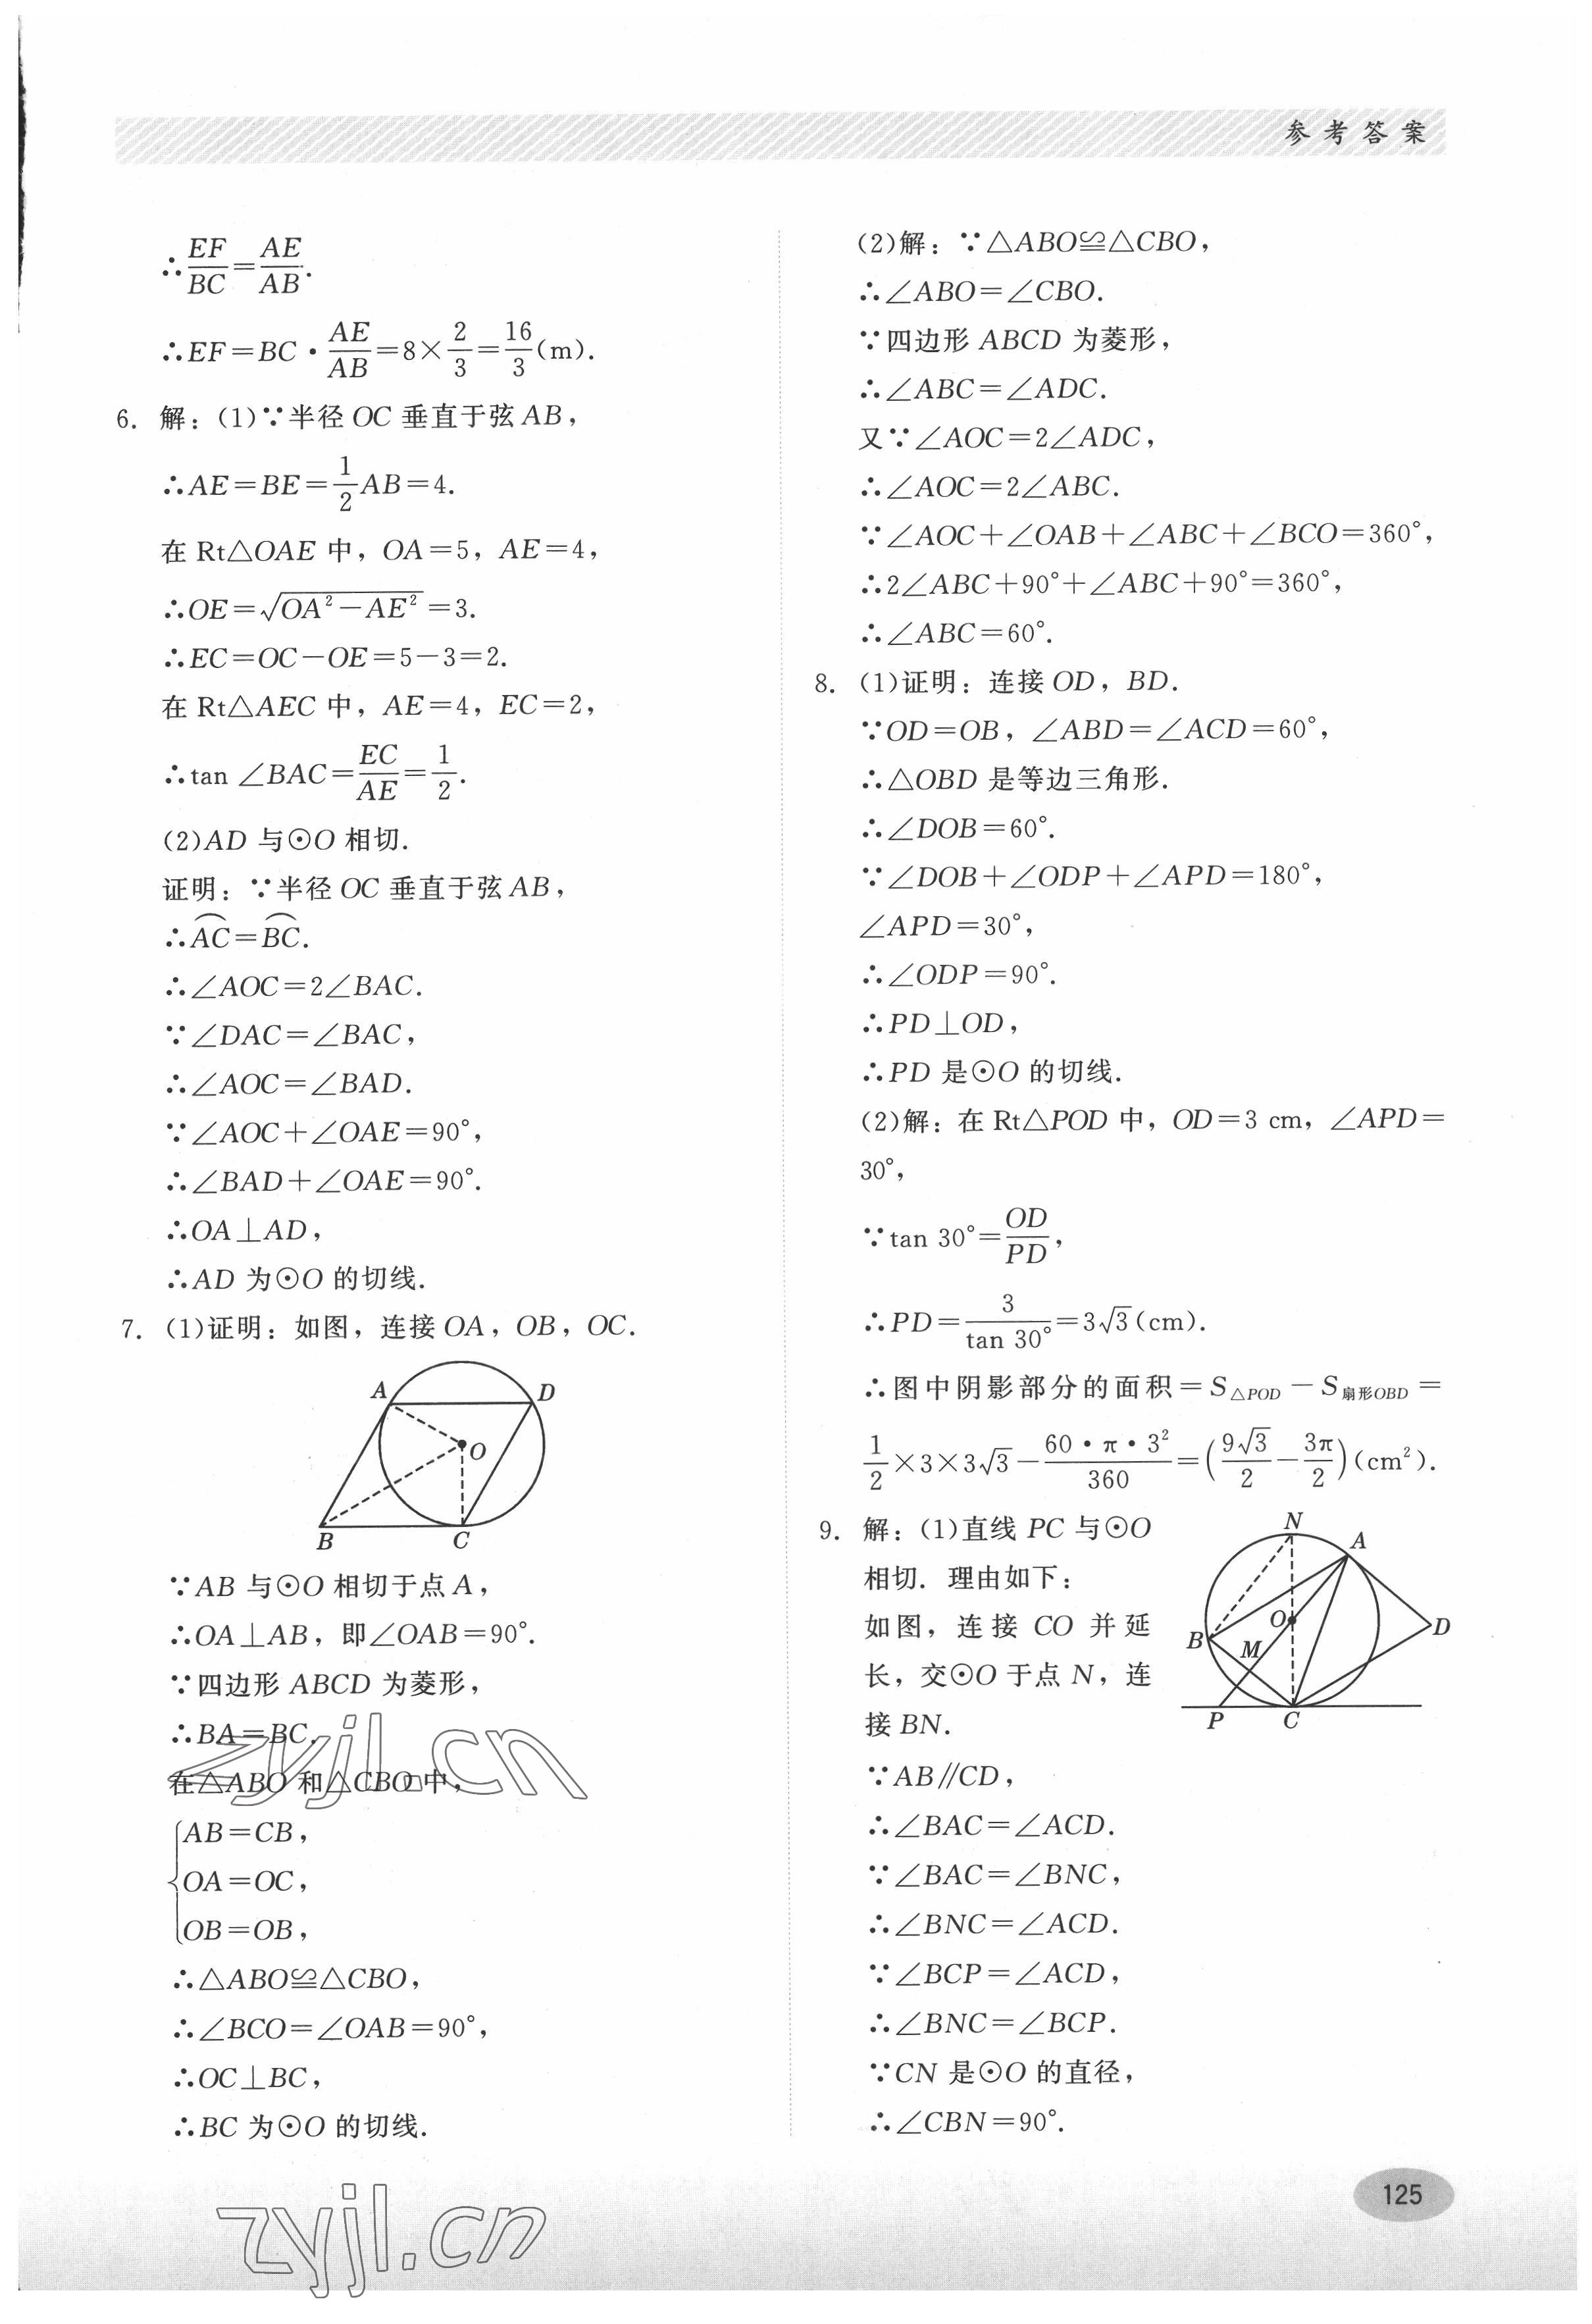 参考答案
∴EF/BC=AE/AB.
∴EF=BC·AE/AB=8×2/3=16/3(m).
6. 解：(1)∵半径 OC 垂直于弦 AB，
∴AE=BE=1/2AB=4.
在 Rt△OAE 中，OA=5，AE=4，
∴OE=√(OA²-AE²)=3.
∴EC=OC-OE=5-3=2.
在 Rt△AEC 中，AE=4，EC=2，
∴tan ∠BAC=EC/AE=1/2.
(2)AD 与⊙O 相切.
证明：∵半径 OC 垂直于弦 AB，
∴⌒AC=⌒BC.
∴∠AOC=2∠BAC.
∵∠DAC=∠BAC，
∴∠AOC=∠BAD.
∵∠AOC+∠OAE=90°，
∴∠BAD+∠OAE=90°.
∴OA⊥AD，
∴AD 为⊙O 的切线.
7. (1)证明：如图，连接 OA，OB，OC.
A
D
O
B
C
∵AB 与⊙O 相切于点 A，
∴OA⊥AB，即∠OAB=90°.
∵四边形 ABCD 为菱形，
∴BA=BC.
在△ABO 和△CBO 中，
AB=CB，
OA=OC，
OB=OB，
∴△ABO≌△CBO，
∴∠BCO=∠OAB=90°，
∴OC⊥BC，
∴BC 为⊙O 的切线.
(2)解：∵△ABO≌△CBO，
∴∠ABO=∠CBO.
∵四边形 ABCD 为菱形，
∴∠ABC=∠ADC.
又∵∠AOC=2∠ADC，
∴∠AOC=2∠ABC.
∵∠AOC+∠OAB+∠ABC+∠BCO=360°，
∴2∠ABC+90°+∠ABC+90°=360°，
∴∠ABC=60°.
8. (1)证明：连接 OD，BD.
∵OD=OB，∠ABD=∠ACD=60°，
∴△OBD 是等边三角形.
∴∠DOB=60°.
∵∠DOB+∠ODP+∠APD=180°，
∠APD=30°，
∴∠ODP=90°.
∴PD⊥OD，
∴PD 是⊙O 的切线.
(2)解：在 Rt△POD 中，OD=3 cm，∠APD=
30°，
∵tan 30°=OD/PD，
∴PD=3/tan 30°=3√3(cm).
∴图中阴影部分的面积=S△POD-S扇形OBD=
1/2×3×3√3-60·π·3²/360=(9√3/2-3π/2)(cm²).
9. 解：(1)直线 PC 与⊙O
相切. 理由如下：
如图，连接 CO 并延
长，交⊙O 于点 N，连
接 BN.
N
A
O
B
M
D
P
C
∵AB∥CD，
∴∠BAC=∠ACD.
∵∠BAC=∠BNC，
∴∠BNC=∠ACD.
∵∠BCP=∠ACD，
∴∠BNC=∠BCP.
∵CN 是⊙O 的直径，
∴∠CBN=90°.
125
zyjl.cn
zyjl.cn